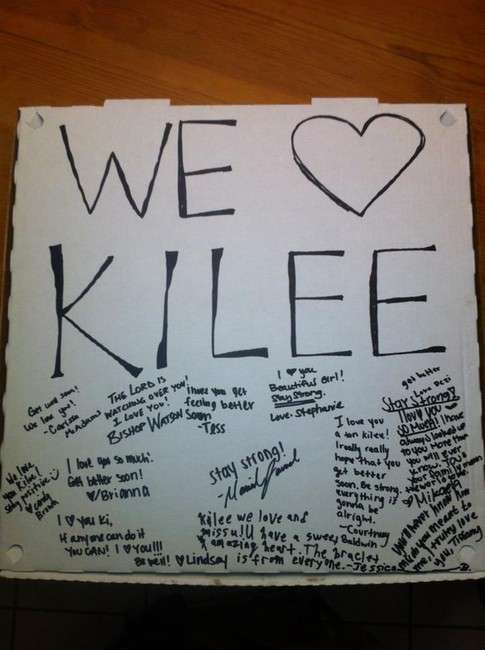 WE ♡
KILEE
Get well soon!
We love you!
-Carissa
McAdams
THE LORD IS
WATCHING OVER YOU!
I LOVE YOU!
BISHOP WATSON
I hope you get
feeling better
Soon
-Tess
I ♥ you
Beautiful Girl!!
Stay Strong.
Love: Stephanie
get better
Love Desi
Stay strong!!
I love you
so much! I have
always looked up
to you more than
you will ever
know. You &
your family
♡ Mikayla
We love
you Kilee!
stay positive :)
I love you so much!
Get better soon!
♡ Brianna
stay strong!
I love you
a ton kilee!
I really really
hope that you
get better
soon. Be strong.
everything is
gonna be
alright.
-Courtney
Baldwin
I ♡ you Ki,
If anyone can do it
YOU CAN! I ♥ YOU!!!
Be well! ♡ Lindsay
Kilee we love and
miss u! U have a sweet
& amazing heart. The bracelet
is from everyone. -Jessica
you, Tiffany